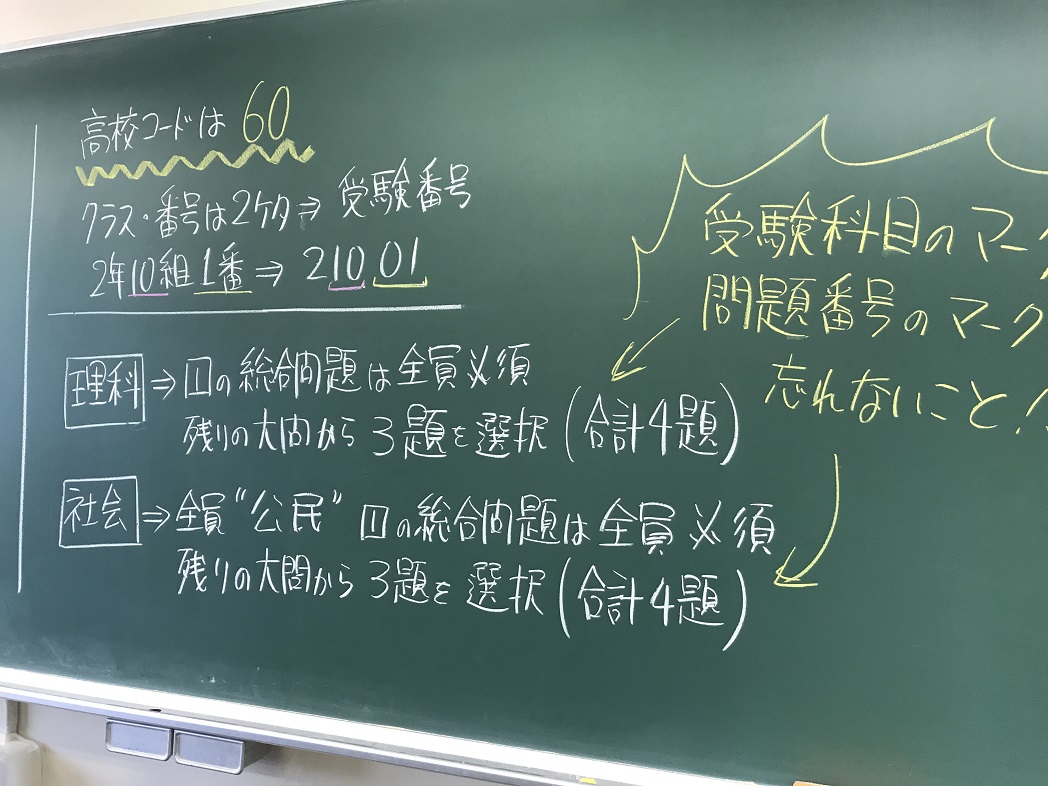 高校コードは 60
クラス・番号は2ケタ⇒ 受験番号
2年10組1番⇒ 21001
理科⇒1の総合問題は全員必須
残りの大問から3題を選択(合計4題)
社会⇒全員"公民" 1の総合問題は全員必須
残りの大問から3題を選択(合計4題)
受験科目のマーク
問題番号のマーク
忘れないこと!